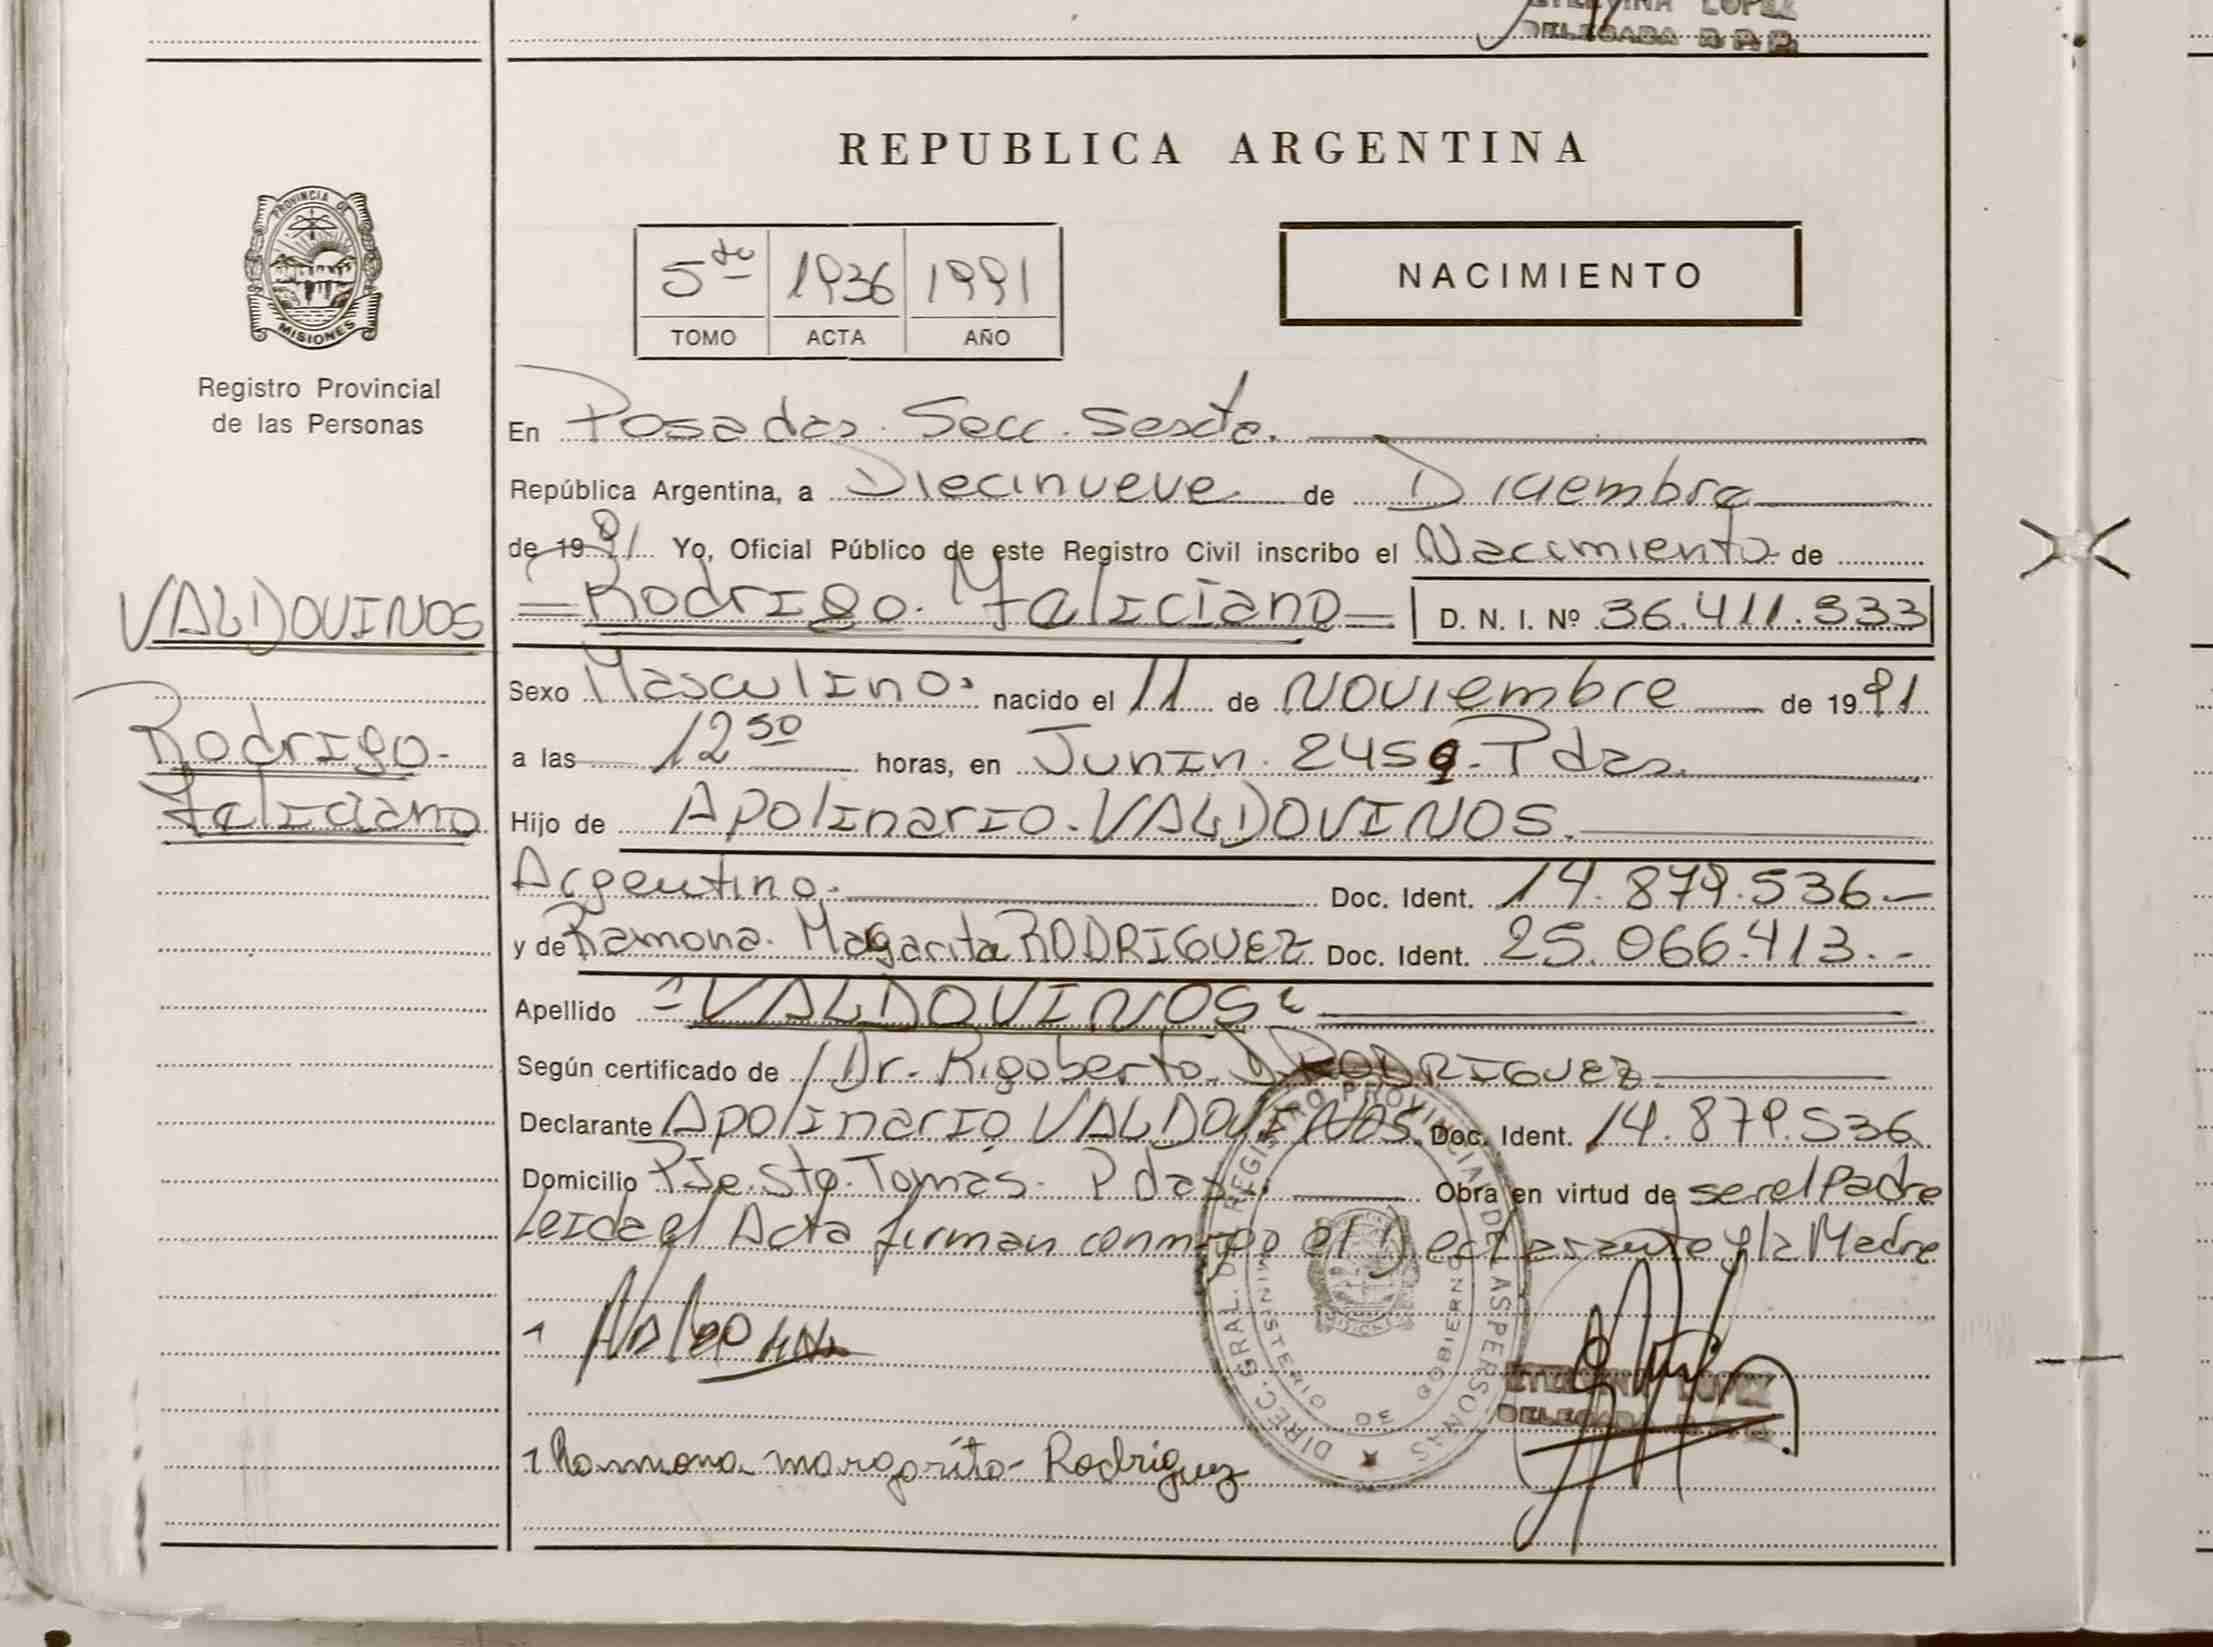 ETELVINA LOPEZ
DELEGADA R. P. P.
REPUBLICA ARGENTINA
PROVINCIA DE
MISIONES
Registro Provincial
de las Personas
5to 1936 1991
TOMO ACTA AÑO
NACIMIENTO
En Posadas. Secc. Sexta.
República Argentina, a Diecinueve de Diciembre
de 1991 Yo, Oficial Público de este Registro Civil inscribo el Nacimiento de
VALDOVINOS
Rodrigo Feliciano
= Rodrigo. Feliciano = D. N. I. Nº 36.411.533
Sexo Masculino. nacido el 11 de Noviembre de 1991
a las 12 50 horas, en Junin. 2459. Pdas.
Hijo de Apolinario. VALDOVINOS.
Argentino. Doc. Ident. 14.879.536.-
y de Ramona. Margarita RODRIGUEZ Doc. Ident. 25.066.413.-
Apellido =VALDOVINOS=
Según certificado de Dr. Rigoberto. RODRIGUEZ
Declarante Apolinario VALDOVINOS. Doc. Ident. 14.879.536
Domicilio Pje. Sto. Tomás. Pdas. Obra en virtud de ser el Padre
Leida el Acta firman conmigo el Declarante y la Madre
DIREC. GRAL. DEL REGISTRO PROVINCIAL DE LAS PERSONAS
MINISTERIO DE GOBIERNO
ETELVINA LOPEZ
DELEGADA R. P. P.
Rammona margarita Rodriguez